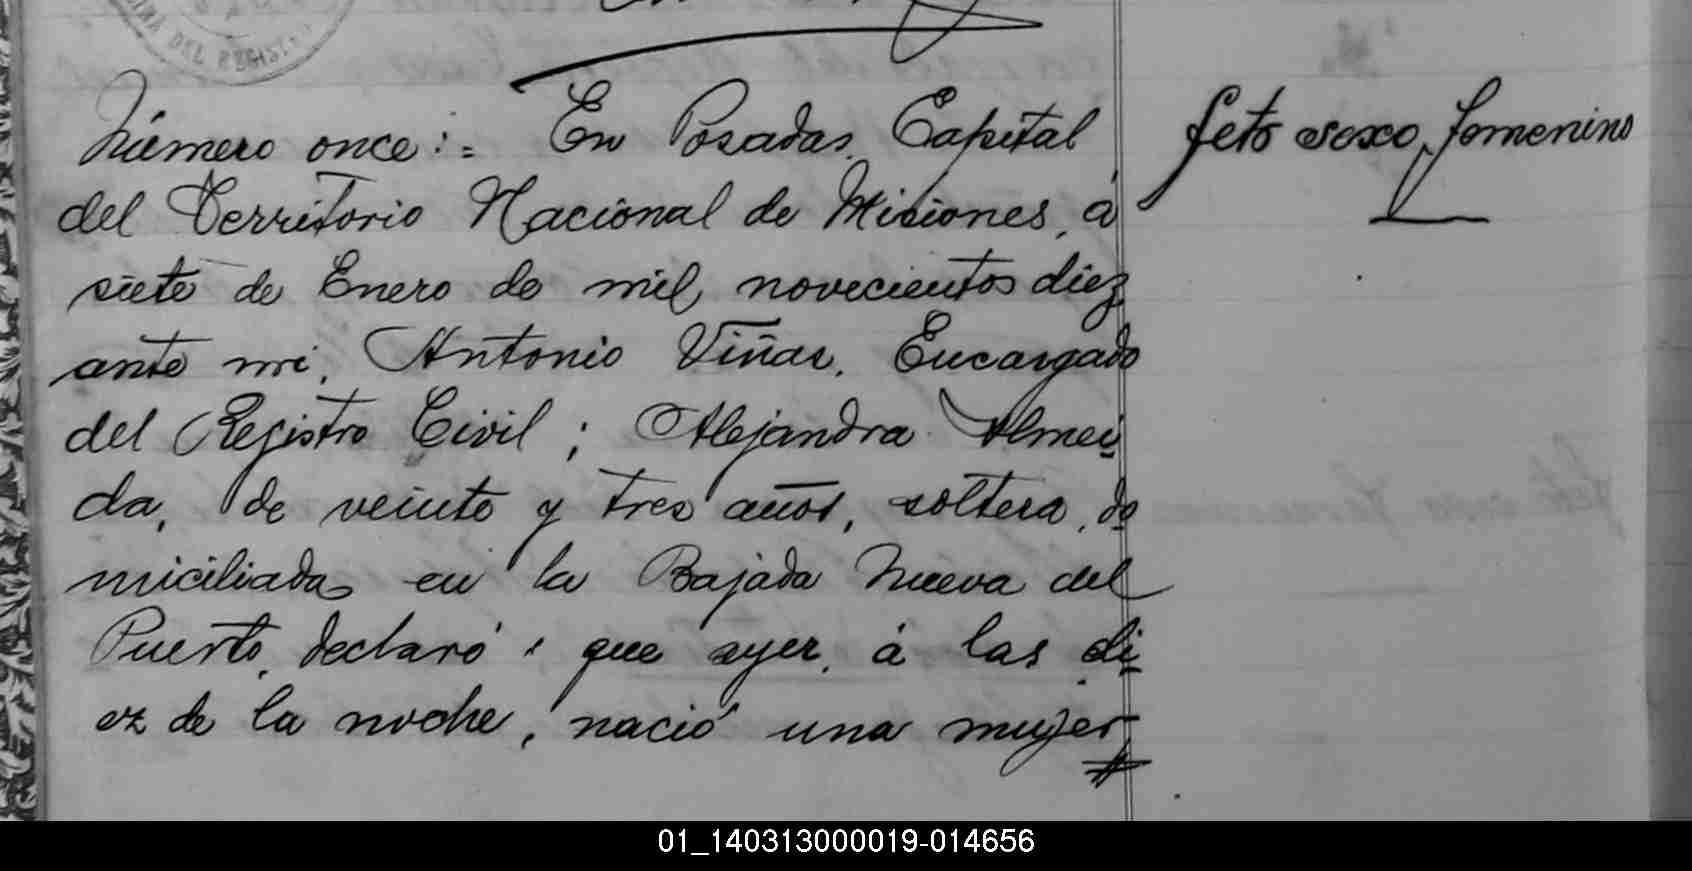 DEL REGIST
Número once:= En Posadas, Capital
del Territorio Nacional de Misiones, á
siete de Enero de mil novecientos diez
ante mi, Antonio Viñas, Encargado
del Registro Civil; Alejandra Almei
da, de veinte y tres años, soltera, do
miciliada en la Bajada Nueva del
Puerto, declaró: que ayer, á las di
ez de la noche, nació una mujer
feto sexo femenino
01_140313000019-014656